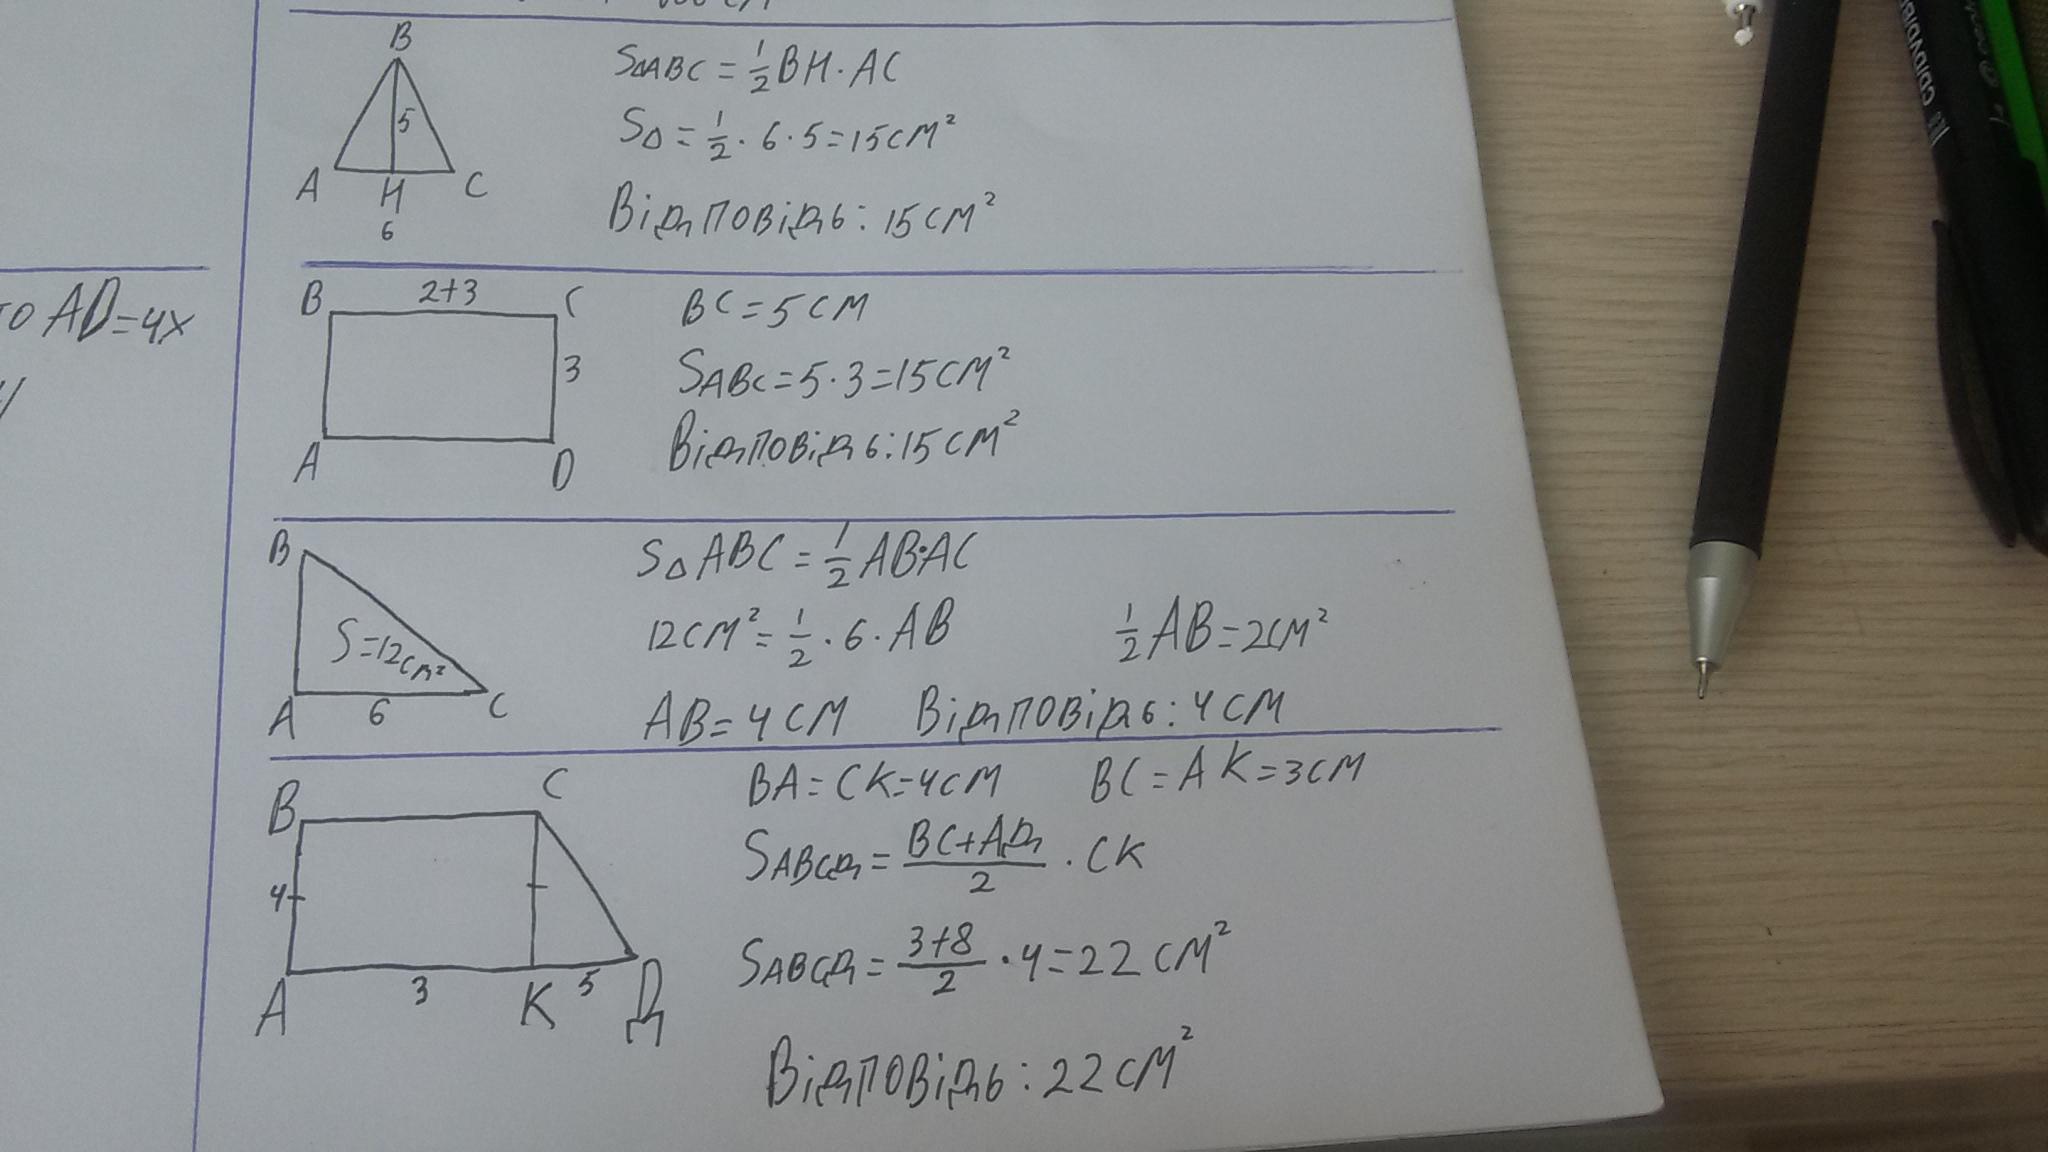 B
5
A H C
6
S△ABC = 1/2 BH · AC
S△ = 1/2 · 6 · 5 = 15 см²
Відповідь: 15 см²
то AD = 4x
B 2+3 C
3
A D
BC = 5 см
SABC = 5 · 3 = 15 см²
Відповідь: 15 см²
B
S = 12 см²
A 6 C
S△ABC = 1/2 AB · AC
12 см² = 1/2 · 6 · AB 1/2 AB = 2 см²
AB = 4 см Відповідь: 4 см
B C
4
A 3 K 5 Д
BA = CK = 4 см BC = AK = 3 см
SABCД = BC + AД / 2 · CK
SABCД = 3 + 8 / 2 · 4 = 22 см²
Відповідь: 22 см²
CD/DVD/BD